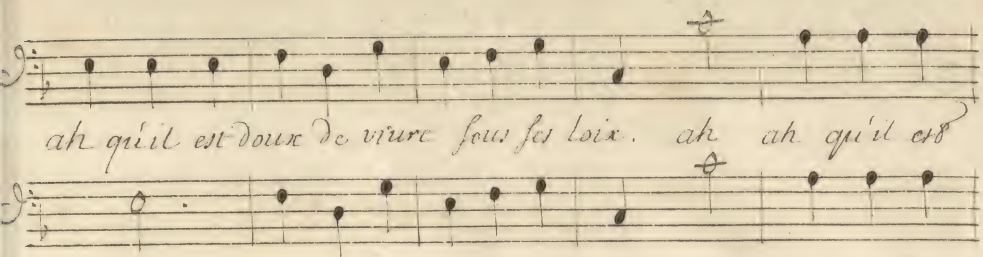 ah qu'il est doux de viure sous ses loix. ah ah qu'il est